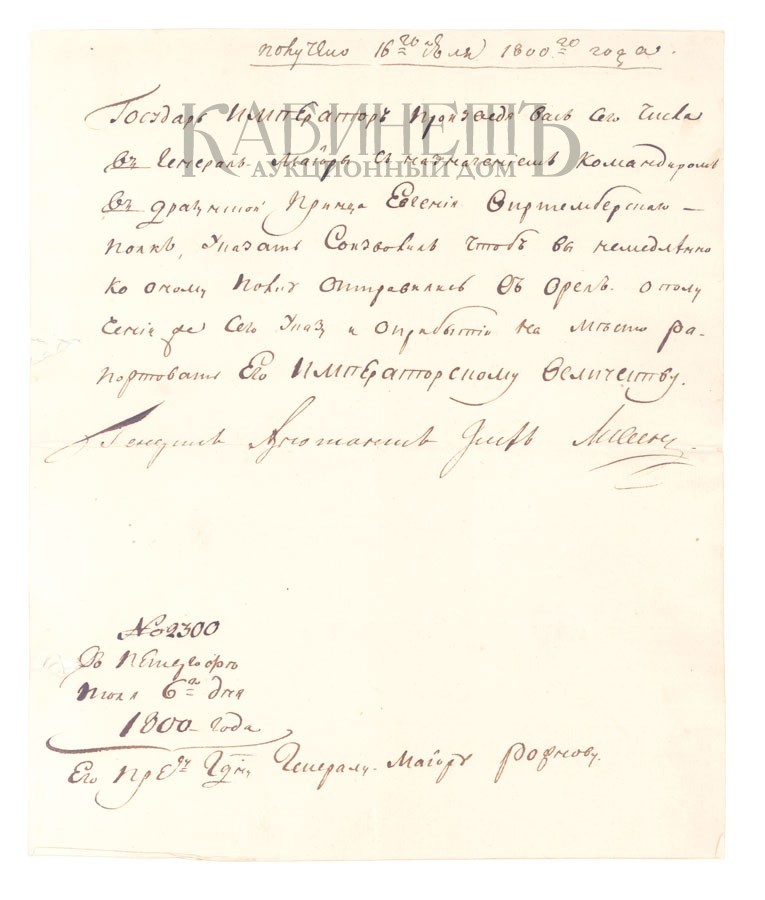 получено 16го июля 1800го года.
КАБИНЕТЪ
АУКЦИОННЫЙ ДОМ
Государь Императоръ произведя васъ сего числа
въ Генералъ Маіоры съ назначеніемъ командиромъ
въ драгунской Принца Евгенія Виртемберскаго
полкъ, указать соизволилъ чтобъ вы немедлѣнно
ко оному полку отправились въ Орелъ. о полу
ченіи же сего указу и о прибытіи на мѣсто ра-
портовать Его Императорскому Величеству.
Генералъ Адъютантъ Графъ Ливенъ.
№ 2300
въ Петергофѣ
июля 6го дня
1800 года
Его Пре Гдну Генералу Маіору